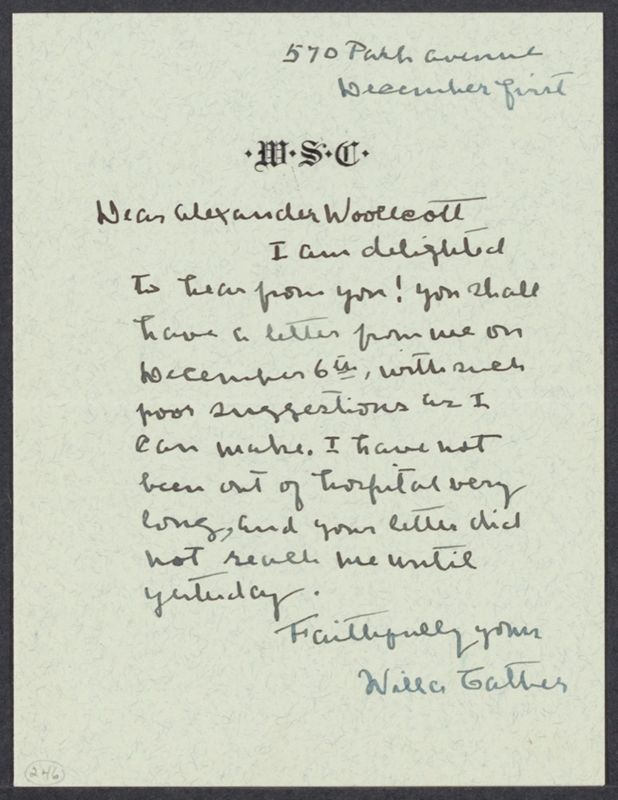 570 Park avenue
December first
·W·S·C·
Dear Alexander Woollcott
I am delighted
to hear from you! you shall
have a letter from me on
December 6th, with such
poor suggestions as I
can make. I have not
been out of hospital very
long, and your letter did
not reach me until
yesterday.
Faithfully yours
Willa Cather
246